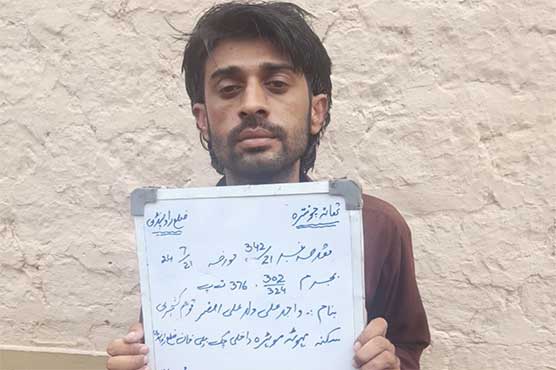 تھانہ چونترہ ضلع راولپنڈی
مقدمہ نمبر 342/21 مورخہ 24/7/21
بجرم 302/324، 376 ت پ
بنام :۔ واجد علی ولد علی اصغر قوم گجر
سکنہ موہڑہ داخلی چک بیلی خان ضلع راولپنڈی